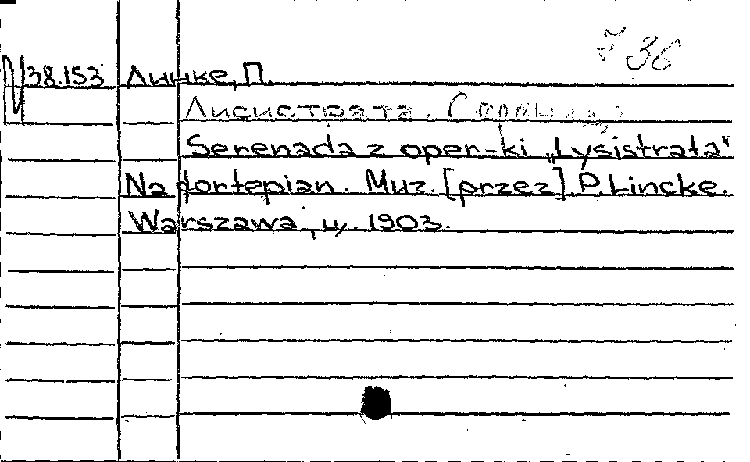 36
38.153 Линке, П.
Лисистрата.
Serenada z oper-ki „Lysistrata"
Na fortepian. Muz. [przez] P. Lincke.
Warszawa, ц. 1903.